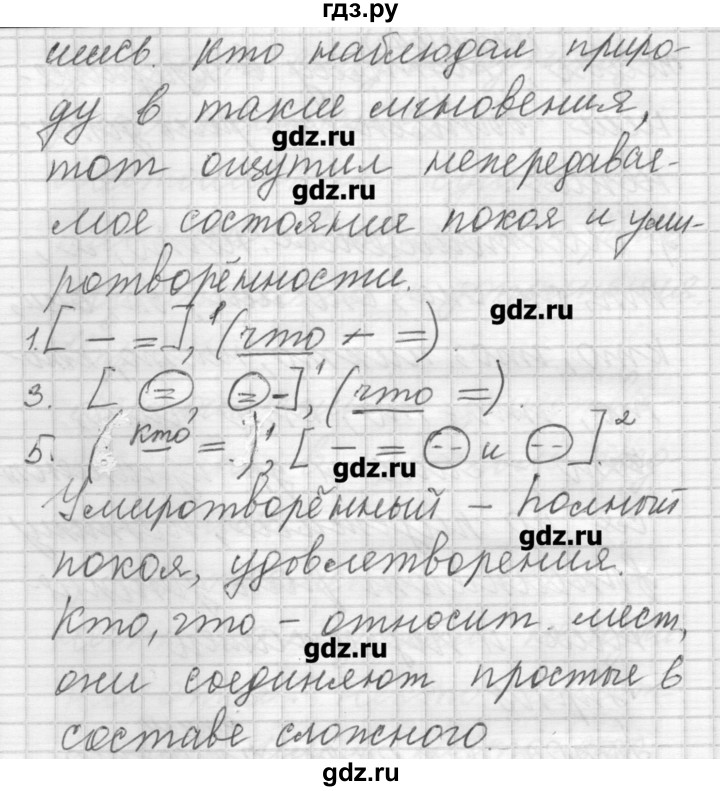 гдз.ру
шись. Кто наблюдал приро-
ду в такие мгновения,
gdz.ru
тот ощутил непередавае-
gdz.ru
мое состояние покоя и уми-
ротворённости.
gdz.ru
1. [ – = ], ¹ (что – =).
3. [ =, = – ], ¹ (что =).
5. (кто =.) ¹, [ – = -- и -- ]. ²
gdz.ru
Умиротворённый – полный
gdz.ru
покоя, удовлетворения.
Кто, что – относит. мест,
gdz.ru
они соединяют простые в
составе сложного.
gdz.ru